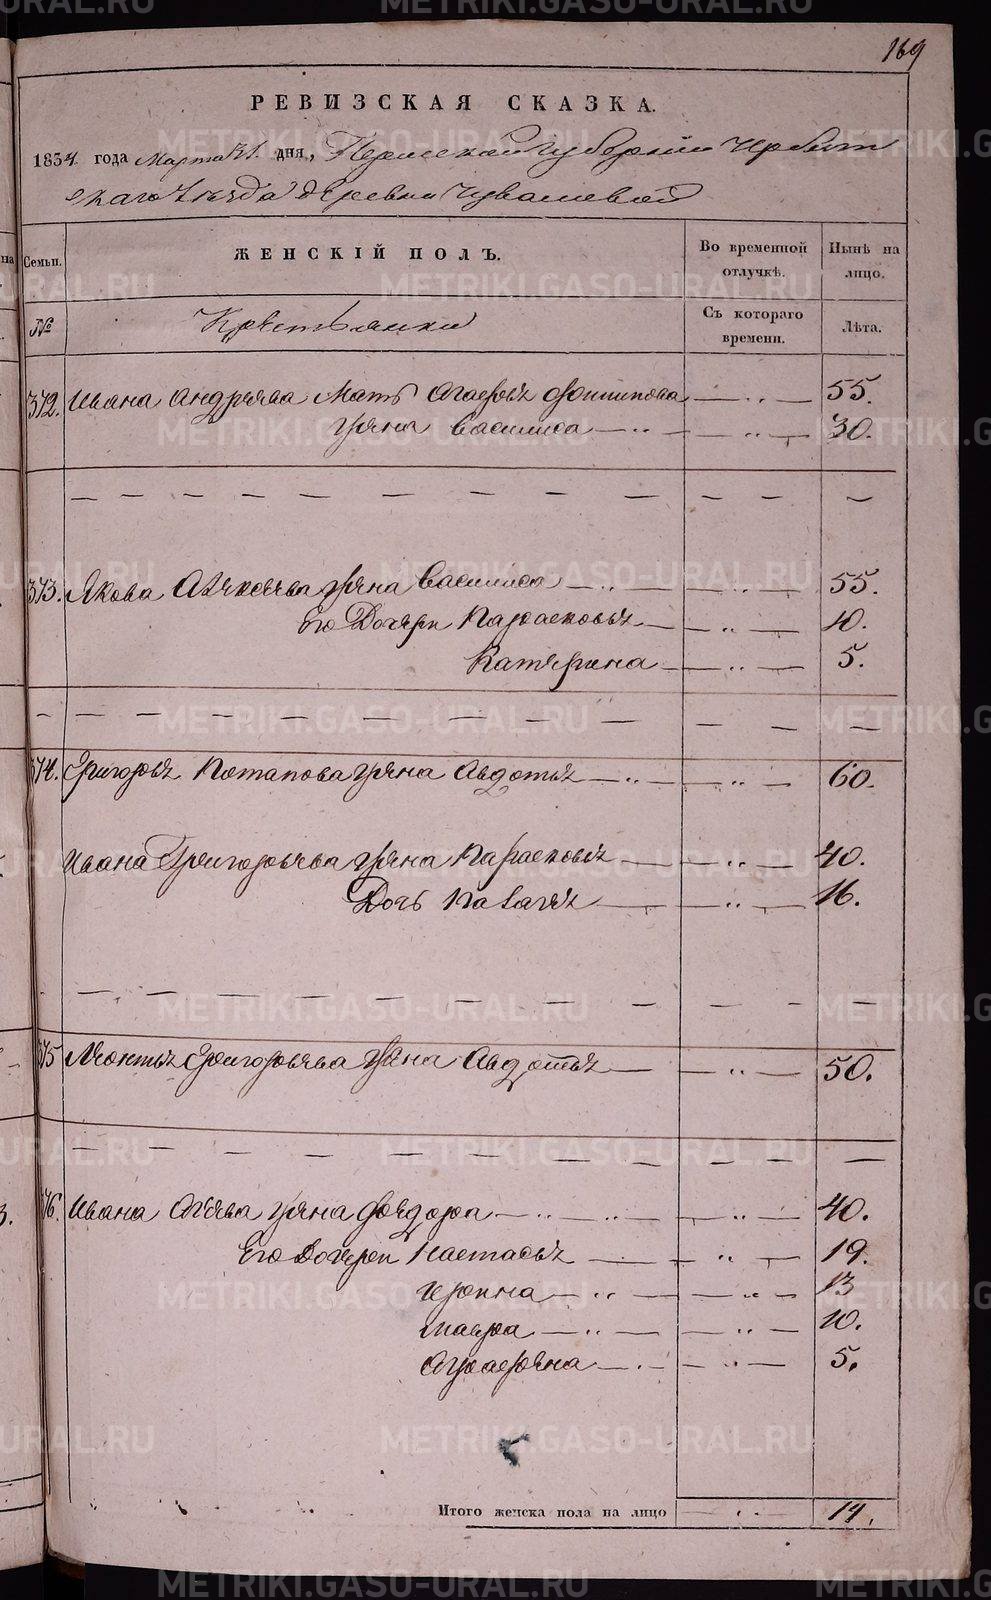 169
РЕВИЗСКАЯ СКАЗКА.
1834 года Марта 31. дня, Пермской Губернии Ирбит
скаго Уезда деревни Чувашевой
Семьи. ЖЕНСКІЙ ПОЛЪ. Во временной отлучкѣ. Нынѣ на лицо.
№ Крестьянки Съ котораго времени. Лѣта.
372. Ивана Андреева Мать Агафья Филипова — „ — 55.
жена Василиса — „ — — „ — 30.
373. Якова Алексеева жена Василиса — „ — — „ — 55.
Его Дочери Парасковья — — „ — 10.
Катерина — — „ — 5.
374. Григорья Потапова жена Авдотья — „ — — „ — 60.
Ивана Григорьева жена Парасковья — — „ — 40.
Дочь Наталья — — „ — 16.
375 Леонтья Григорьева жена Авдотья — — „ — 50.
376. Ивана жена Федора — „ — „ — — „ — 40.
Его Дочери Настасья — — „ — 19.
Ирина — „ — — „ — 13
Мавра — „ — — „ — 10.
Аграфена — „ — — „ — 5.
Итого женска пола на лицо — „ — 14.
METRIKI.GASO-URAL.RU